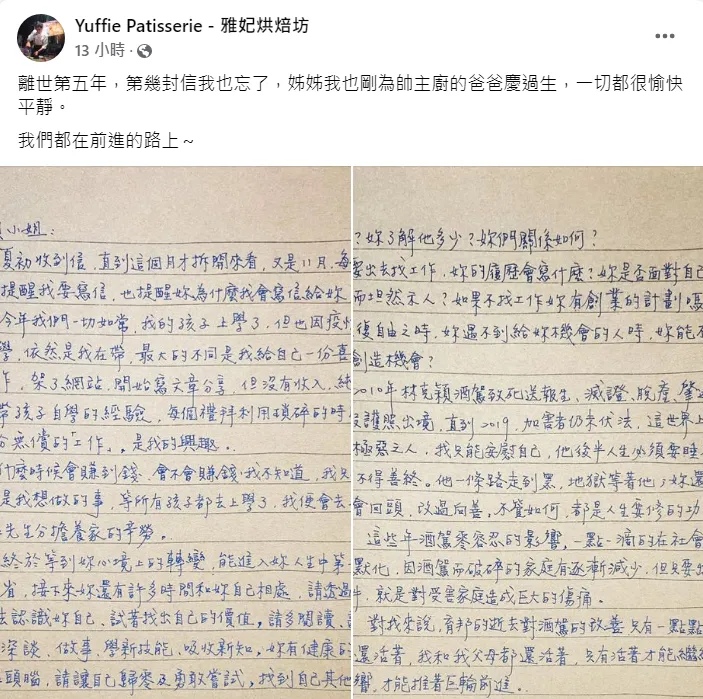 Yuffie Patisserie - 雅妃烘焙坊
13 小時 ·
離世第五年，第幾封信我也忘了，姊姊我也剛為帥主廚的爸爸慶過生，一切都很愉快
平靜。
我們都在前進的路上~
小姐：
夏初收到信，直到這個月才拆開來看，又是11月，每
提醒我要寫信，也提醒妳為什麼我會寫信給妳
今年我們一切如常，我的孩子上學了，但也因疫
學，依然是我在帶，最大的不同是我給自己一份喜
作，架了網站，開始寫文章分享，但沒有收入，純
帶孩子自學的經驗，每個禮拜利用瑣碎的時
份無償的「工作」，是我的興趣。
什麼時候會賺到錢，會不會賺錢我不知道，我只
是我想做的事，等所有孩子都去上學了，我便會去
先生分擔養家的辛勞。
終於等到妳心境上的轉變，能進入妳人生中第
省，接下來妳還有許多時間和妳自己相處，請透過
去認識妳自己，試著找出自己的價值，請多閱讀、
深談、做事、學新技能、吸收新知，妳有健康的
頭腦，請讓自己歸零及勇敢嘗試，找到自己其他
？妳了解他多少？妳們關係如何？
要出去找工作，妳的履歷會寫什麼？妳是否面對自己
而坦然示人？如果不找工作妳有創業的計劃嗎
復自由之時，妳遇不到給妳機會的人時，妳能不
創造機會？
2010年林克穎酒駕致死送報生，滅證、脫產、肇
護照出境，直到2019，加害者仍未伏法，這世界上
極惡之人，我只能安慰自己，他後半人生必須要睡
不得善終。他一條路走到黑，地獄等著他；妳還
會回頭，改過向善，不管如何，都是人生要修的功
這些年酒駕零容忍的影響，一點一滴的在社會
默化，因酒駕而破碎的家庭有逐漸減少，但只要
就是對受害家庭造成巨大的傷痛。
對我來說，育邦的逝去對酒駕的改善只有一點點
還活著，我和我父母都還活著，只有活著才能繼
響，才能推著巨輪前進。